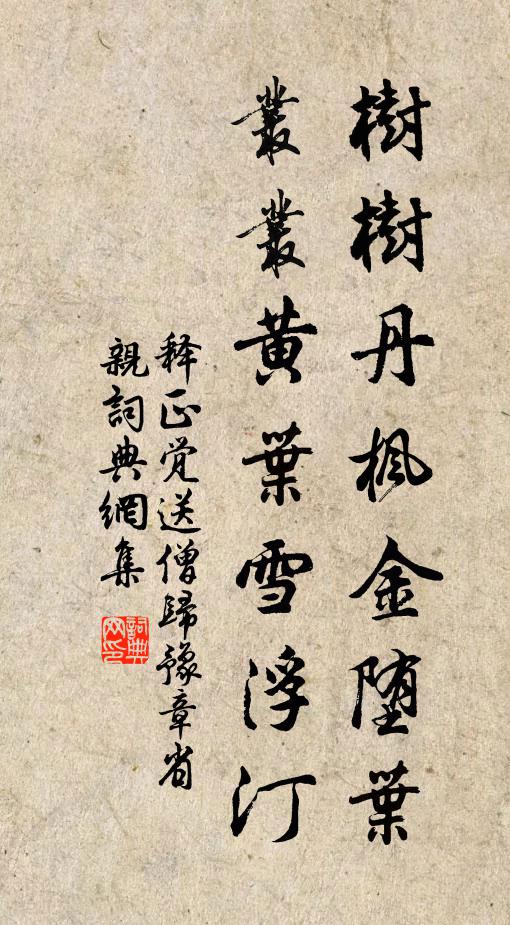 樹樹丹楓金堕葉
叢叢黄葉雪浮汀
释正觉送僧歸豫章省
親詞典網集
詞典网印